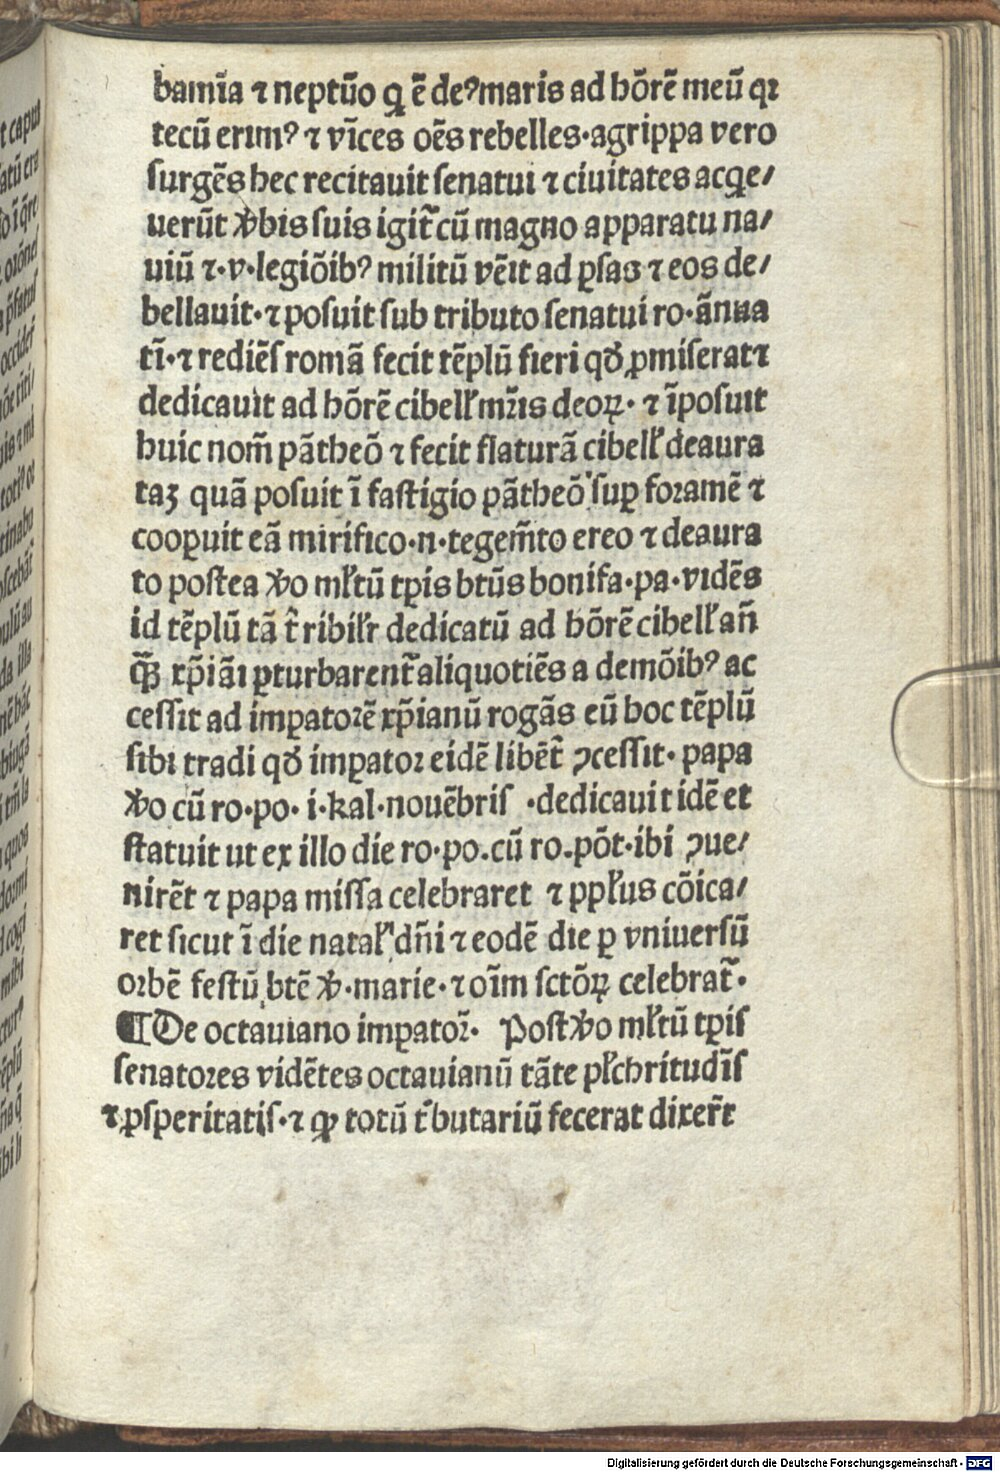 bamīa ⁊ neptūo q̄ ē deꝰ maris ad hōrē meū qꝛ
tecū erimꝰ ⁊ vīces oēs rebelles·agrippa vero
surgēs hec recitauit senatui ⁊ ciuitates acqͥe/
uerūt v̾bis suis igit᷑ cū magno apparatu na/
uiū ⁊·v·legiōibꝰ militū vēit ad ꝑsas ⁊ eos de/
bellauit·⁊ posuit sub tributo senatui ro·ānua
tī·⁊ rediēs romā fecit tēplū fieri qđ ꝓmiserat ⁊
dedicauit ad hōrē cibelł mr̄is deoꝝ· ⁊ īposuit
huic nom̄ pātheō ⁊ fecit ſlaturā cibelł deaura
taꝫ quā posuit ī fastigio pātheō suꝑ foramē ⁊
cooꝑuit eā mirifico·n·tegem̄to ereo ⁊ deaura
to postea v̾o mł̄tū tꝑis btūs bonifa·pa·vidēs
id tēplū tā t᷑ribilr̄ dedicatū ad hōrē cibelł añ
xp̄iāi ꝑturbarent᷑ aliquotiēs a demōibꝰ ac
cessit ad imꝑatorē xp̄ianū rogās eū hoc tēplū
sibi tradi qđ imꝑator eidē libēt᷑ ꝯcessit· papa
v̾o cū ro·po· i·kal·nouēbris ·dedicauit idē et
statuit ut ex illo die ro·po.cū ro.pōt·ibi ꝯue/
nirēt ⁊ papa missa celebraret ⁊ ppłus cōica/
ret sicut ī die natał dn̄i ⁊ eodē die ꝑ vniuersū
orbē festū btē v̾·marie·⁊ oīm sctōꝝ celebrat᷑·
¶ De octauiano imꝑator̄· Post v̾o mł̄tū tꝑis
senatores vidētes octauianū tāte płchritudīs
⁊ ꝓsperitatis·⁊ ꝙ totū t͛butariū fecerat dixer̄t
Digitalisierung gefördert durch die Deutsche Forschungsgemeinschaft - DFG